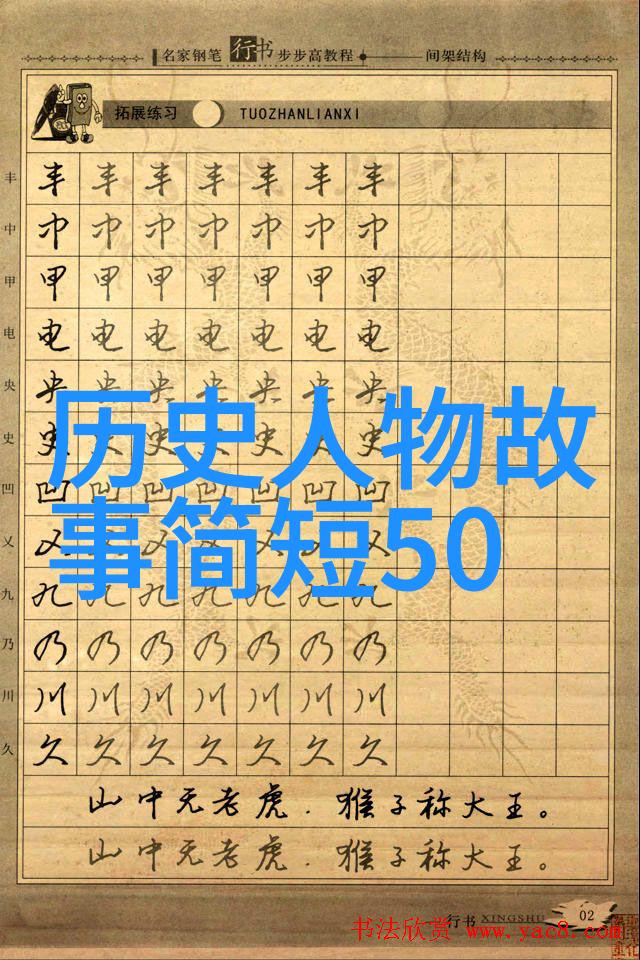 名家钢笔行书步步高教程 间架结构
拓展练习 TUOZHANLIANXI
丰 丰 丰 丰 丰 丰 丰 丰
中 中 中 中 中 中 中 中
甲 甲 甲 甲 甲 甲 甲 甲
电 电 电 电 电 电 电 电
央 央 央 央 央 央 央 央
历史人物故
史 史 史 史 史 史 史 史
凹 凹 凹 凹 凹 凹 凹 凹
事简短50
乂 乂 乂 乂 乂 乂 乂 乂
九 九 九 九 九 九 九 九
乃 乃 乃 乃 乃 乃 乃 乃
川 川 川 川 川 川 川 川
久 久 久 久 久 久 久 久
山中无老虎．猴子称大王。
山中无老虎．猴子称大王。
行书 XINGSHU 02
书法欣赏 www.yac8.com